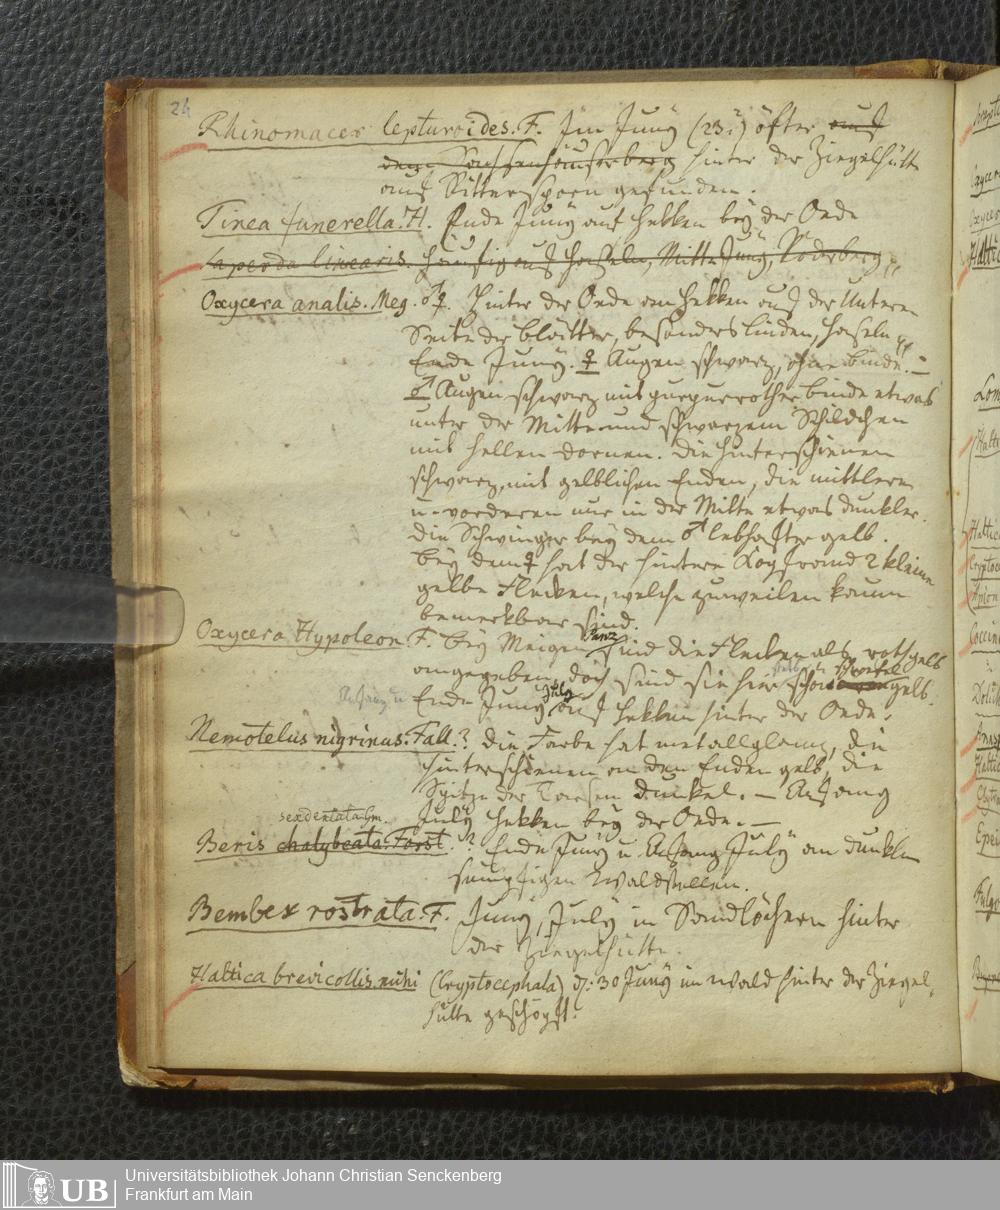 24
Rhinomacer lepturoides. F. Im Juny (23.) öfter auf
dem Sachsenhäuserberg hinter der Ziegelhütte
auf Rittersporn gefunden.
Tinea funerella. H. Ende Juny auf Hekken bey der Oede
Saperda linearis. häufig auf Haseln, Mitte Juny, Röderberg.
Oxycera analis. Meg. ♂♀. Hinter der Oede an Hekken auf der Untern
Seite der Blätter, besonders Linden, Haseln
Ende Juny. ♀ Augen schwarz, ohne Binde. –
♂ Augen schwarz mit purpurrother Binde etwas
unter der Mitte und schwarzem Schildchen
mit hellen Dornen. Die Hinterschienen
schwarz, mit gelblichen Enden, die mittlern
u. vorderen nur in der Mitte etwas dunkler.
Die Schwinger bey dem ♂ lebhafter gelb.
Bey dem ♀ hat der hintere Kopfrand 2 kleine
gelbe Flecken, welche zuweilen kaum
bemerkbar sind.
Oxycera Hypoleon. F. Bey Meigen Panz sind die Flecken als rothgelb
angegeben, doch sind sie hier schwefel gelb.
Anfang u Ende Juny July auf Hekken hinter der Oede.
Nemotelus nigrinus. Fall.? Die Farbe hat metallglanz, die
Hinterschienen an den Enden gelb, die
Spitze der Tarsen dunkel. – Anfang
July Hekken bey der Oede. –
sexdentata Gm.
Beris chalybeata. Forst.? Ende Juny u. Anfang July an dunklen
sumpfigen Waldstellen.
Bembex rostrata. F. Juny, July in Sandlöchern hinter
der Ziegelhütte.
Haltica brevicollis. mihi (Cryptocephala) d. 30 Juny im Wald hinter der Ziegel-
hütte geschöpft.
UB
Universitätsbibliothek Johann Christian Senckenberg
Frankfurt am Main